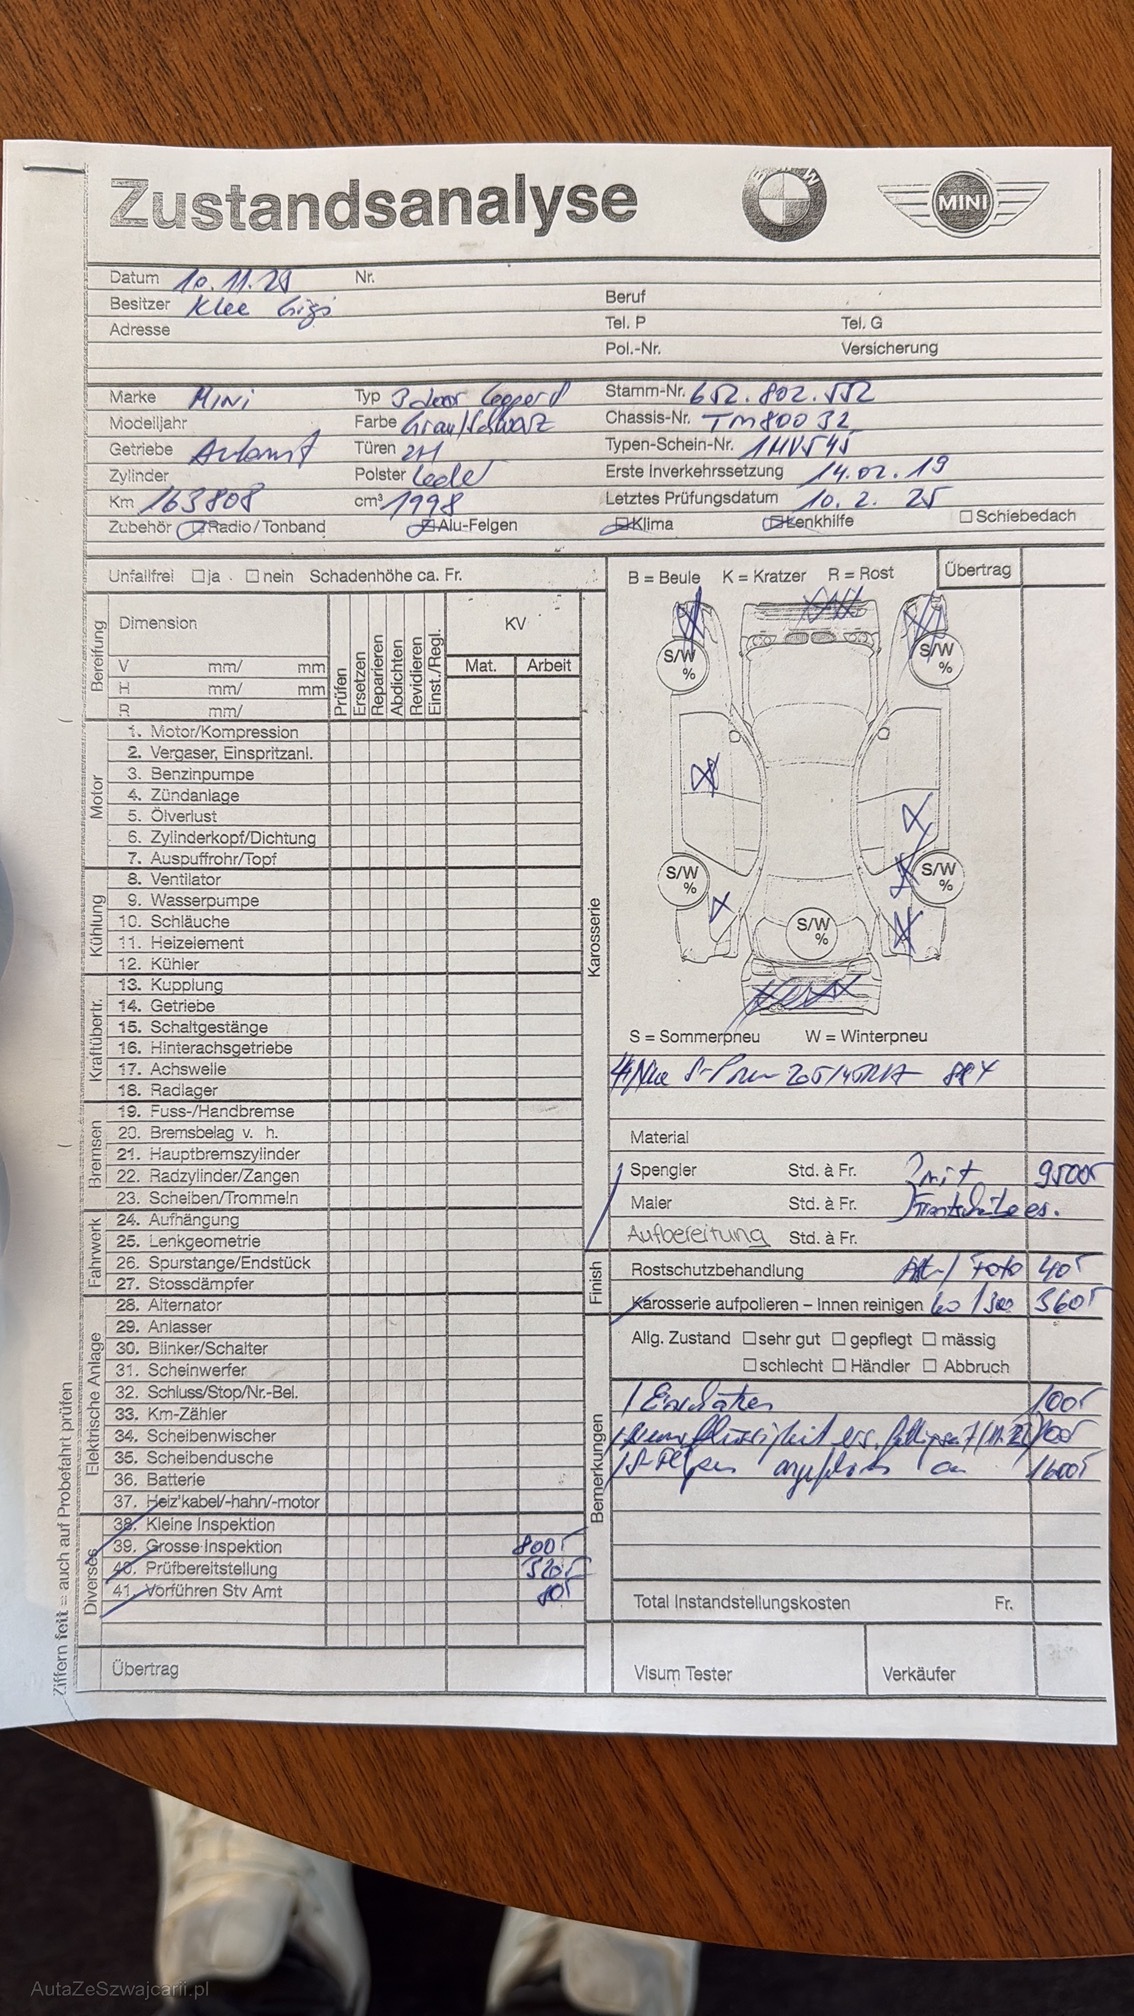 Zustandsanalyse
BMW
MINI
Datum 10.11.25 Nr.
Besitzer Klee Gigi
Beruf
Adresse
Tel. P Tel. G
Pol.-Nr. Versicherung
Marke MINI Typ 3 door Stamm-Nr. 652.802.552
Modelljahr Farbe Grau/Schwarz Chassis-Nr. TM80032
Getriebe Automat Türen 2H Typen-Schein-Nr. 1HV545
Zylinder Polster Leder Erste Inverkehrssetzung 14.02.19
Km 163808 cm³ 1998 Letztes Prüfungsdatum 10.2.25
Zubehör Radio / Tonband Alu-Felgen Klima Lenkhilfe Schiebedach
Unfallfrei ja nein Schadenhöhe ca. Fr.
B = Beule K = Kratzer R = Rost Übertrag
Bereifung
Dimension
V mm/ mm
H mm/ mm
R mm/
Prüfen
Ersetzen
Reparieren
Abdichten
Revidieren
Einst./Regl.
KV
Mat. Arbeit
Motor
1. Motor/Kompression
2. Vergaser, Einspritzanl.
3. Benzinpumpe
4. Zündanlage
5. Ölverlust
6. Zylinderkopf/Dichtung
7. Auspuffrohr/Topf
Kühlung
8. Ventilator
9. Wasserpumpe
10. Schläuche
11. Heizelement
12. Kühler
Kraftübertr.
13. Kupplung
14. Getriebe
15. Schaltgestänge
16. Hinterachsgetriebe
17. Achswelle
18. Radlager
Bremsen
19. Fuss-/Handbremse
20. Bremsbelag v. h.
21. Hauptbremszylinder
22. Radzylinder/Zangen
23. Scheiben/Trommeln
Fahrwerk
24. Aufhängung
25. Lenkgeometrie
26. Spurstange/Endstück
27. Stossdämpfer
Elektrische Anlage
28. Alternator
29. Anlasser
30. Blinker/Schalter
31. Scheinwerfer
32. Schluss/Stop/Nr.-Bel.
33. Km-Zähler
34. Scheibenwischer
35. Scheibendusche
36. Batterie
37. Heiz'kabel/-hahn/-motor
Diverses
38. Kleine Inspektion
39. Grosse Inspektion 800.-
40. Prüfbereitstellung 320.-
41. Vorführen Stv Amt 80.-
Übertrag
Ziffern fett = auch auf Probefahrt prüfen
Karosserie
S/W %
S/W %
S/W %
S/W %
S/W %
S = Sommerpneu W = Winterpneu
4 Neue S-Pneu 205/45R17 88Y
Material
Spengler Std. à Fr. mit 9500.-
Maler Std. à Fr. Frontscheibe es.
Aufbereitung Std. à Fr.
Finish
Rostschutzbehandlung Foto 40.-
Karosserie aufpolieren – Innen reinigen 60/300 360.-
Allg. Zustand sehr gut gepflegt mässig
schlecht Händler Abbruch
Bemerkungen
100.-
Bremsflüssigkeit
S-Felgen 1600.-
Total Instandstellungskosten Fr.
Visum Tester Verkäufer
AutaZeSzwajcarii.pl